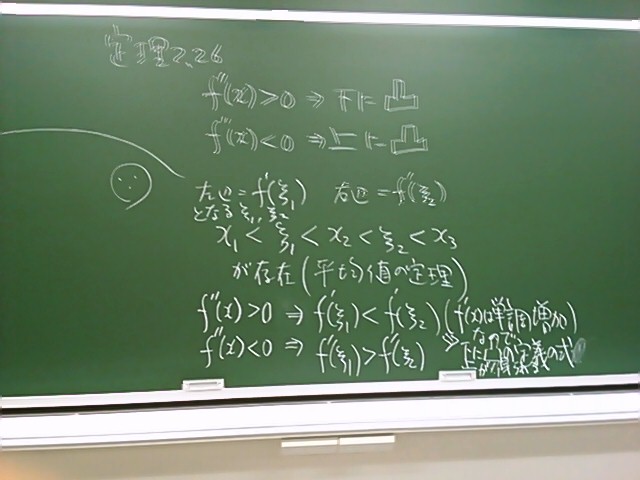 定理2.26
f''(x)>0 ⇒ 下に凸
f''(x)<0 ⇒ 上に凸
左辺=f'(ξ₁) 右辺=f'(ξ₂)
となる ξ₁, ξ₂
x₁ < ξ₁ < x₂ < ξ₂ < x₃
が存在(平均値の定理)
f''(x)>0 ⇒ f'(ξ₁)<f'(ξ₂) (f'(x)は単調増加)
なので
f''(x)<0 ⇒ f'(ξ₁)>f'(ξ₂)
の定義の式